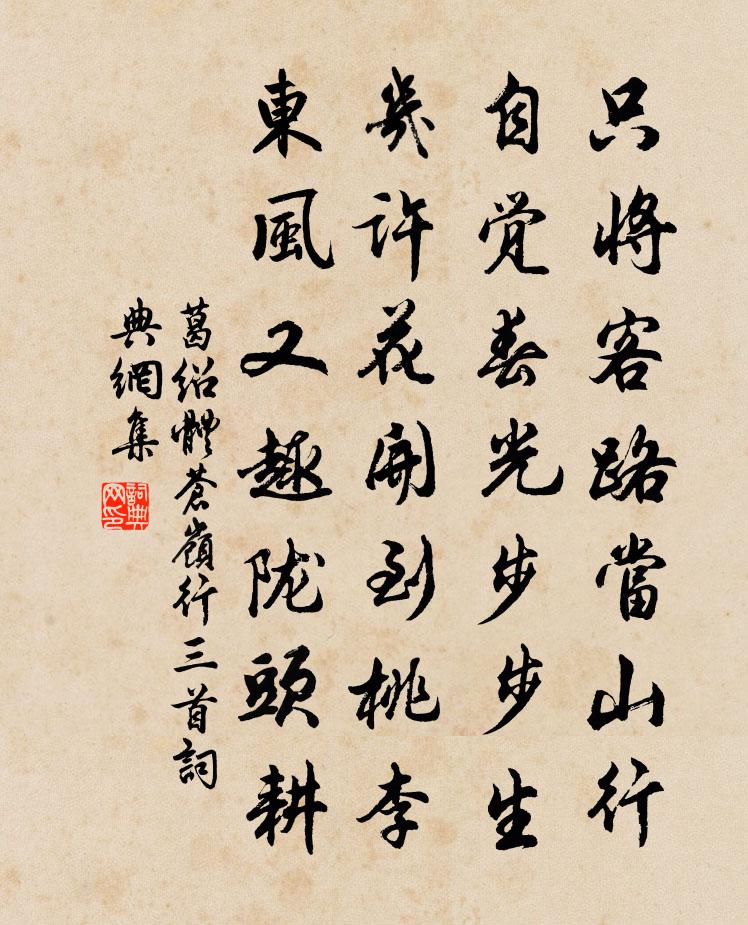 只將客路當山行
自觉春光步步生
幾許花開到桃李
東風又趣陇頭耕
葛绍體蒼嶺行三首詞
典網集
詞典
网印